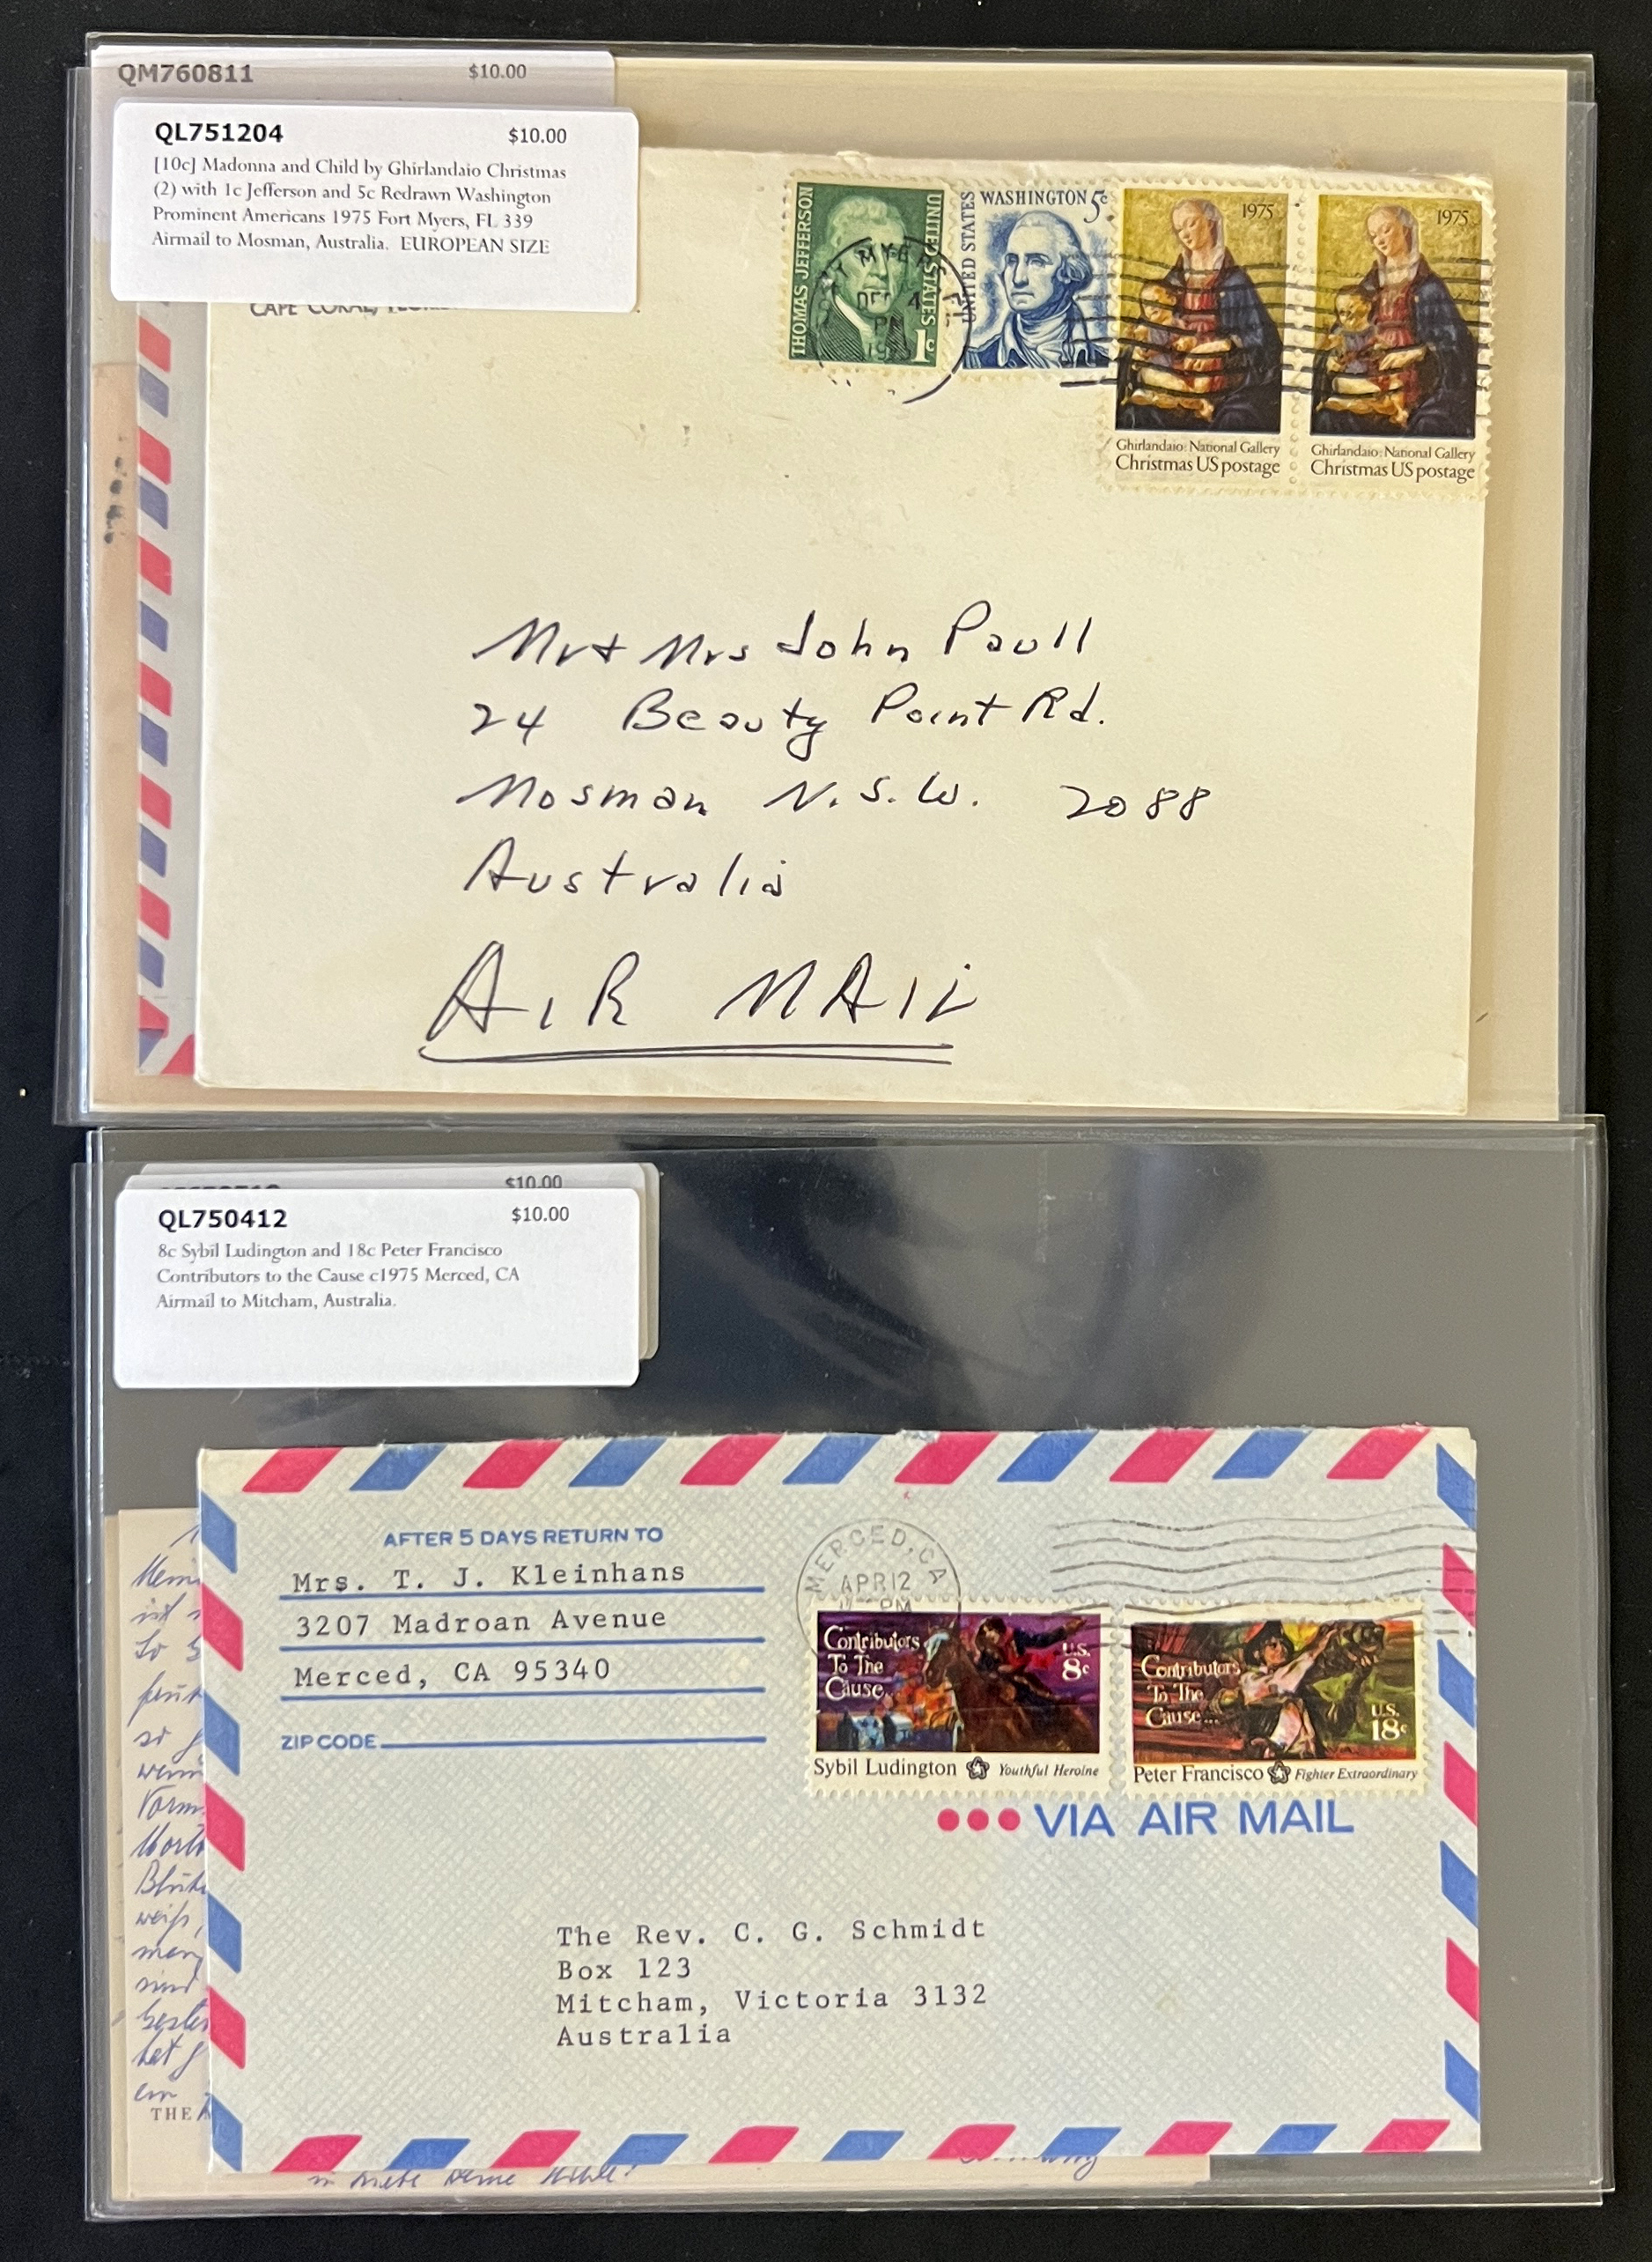 QM760811 $10.00
QL751204 $10.00
[10c] Madonna and Child by Ghirlandaio Christmas
(2) with 1c Jefferson and 5c Redrawn Washington
Prominent Americans 1975 Fort Myers, FL 339
Airmail to Mosman, Australia. EUROPEAN SIZE
CAPE CORAL,
THOMAS JEFFERSON
UNITED STATES
1c
DEC 4
PM
UNITED STATES
WASHINGTON 5c
1975
Ghirlandaio: National Gallery
Christmas US postage
1975
Ghirlandaio: National Gallery
Christmas US postage
Mr + Mrs John Paull
24 Beauty Point Rd.
Mosman N.S.W. 2088
Australia
AIR MAIL
$10.00
QL750412 $10.00
8c Sybil Ludington and 18c Peter Francisco
Contributors to the Cause c1975 Merced, CA
Airmail to Mitcham, Australia.
AFTER 5 DAYS RETURN TO
Mrs. T. J. Kleinhans
3207 Madroan Avenue
Merced, CA 95340
ZIP CODE
MERCED, CA
APR 12
PM
Contributors
To The
Cause...
U.S.
8c
Sybil Ludington Youthful Heroine
Contributors
To The
Cause...
U.S.
18c
Peter Francisco Fighter Extraordinary
VIA AIR MAIL
The Rev. C. G. Schmidt
Box 123
Mitcham, Victoria 3132
Australia
THE